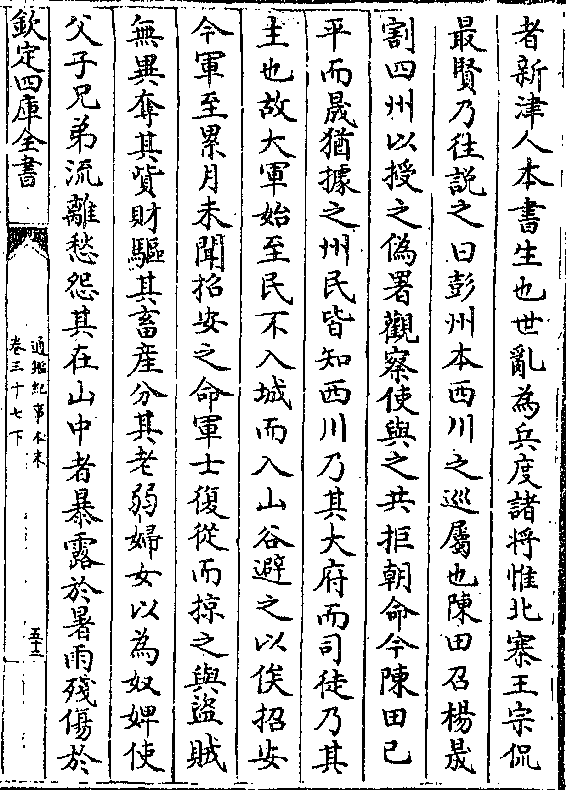 者新津人本書生也世亂為兵度諸將惟北寨王宗侃
最賢乃往説之曰彭州本西川之巡屬也陳田召楊晟
割四州以授之偽署觀察使與之共拒朝命今陳田已
平而晟猶據之州民皆知西川乃其大府而司徒乃其
主也故大軍始至民不入城而入山谷避之以俟招安
今軍至累月未聞招安之命軍士復從而掠之與盜賊
無異奪其貲財驅其畜產分其老弱婦女以為奴婢使
父子兄弟流離愁怨其在山中者暴露於暑雨殘傷於
欽定四庫全書
通鑑紀事本末
卷三十七下
五十三